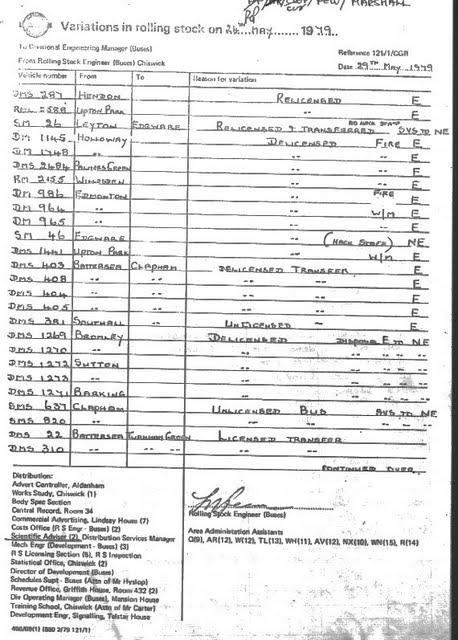 Variations in rolling stock on 26th May 1979
To Divisional Engineering Manager (Buses)
Reference 121/1/CGR
From Rolling Stock Engineer (Buses) Chiswick
Date 29TH May 1979
Vehicle number From To Reason for variation
DMS 287 HENDON RELICENSED E
UPTON PARK " E
SM 26 LEYTON EDGWARE RELICENSED & TRANSFERRED SVS TO NE
DM 1145 HOLLOWAY DELICENSED FIRE E
DM 1748 " " E
DMS 2484 PALMERS GREEN " E
RM 2155 WILLESDEN " E
DM 986 EDMONTON " FIRE E
DM 964 " " W/M E
DM 965 " " E
SM 46 EDGWARE " (HACK STAFF) NE
DMS 1441 UPTON PARK " W/M E
DMS 403 BATTERSEA CLAPHAM DELICENSED TRANSFER E
DMS 408 " " " " E
DMS 404 " " " " E
DMS 405 " " " " E
DMS 381 SOUTHALL UNLICENSED E
DMS 1269 BROMLEY DELICENSED DISPOSA E TO NE
DMS 1270 " " " " "
DMS 1272 SUTTON " " " "
DMS 1273 " " " " "
DMS 1271 BARKING " " " "
SMS 637 CLAPHAM UNLICENSED BUS SVS TO NE
SMS 820 " " " " " "
DMS 22 BATTERSEA TURNHAM GREEN LICENSED TRANSFER
DMS 310 " " " "
CONTINUED OVER.
Distribution:
Advert Controller, Aldenham
Works Study, Chiswick (1)
Body Spec Section
Central Record, Room 34
Commercial Advertising, Lindsay House (7)
Costs Office (R S Engr - Buses) (2)
Scientific Adviser (2), Distribution Services Manager
Mech Engr (Development - Buses) (3)
R S Licensing Section (5), R S Inspection
Statistical Office, Chiswick (2)
Director of Development (Buses)
Schedules Supt - Buses (Attn of Mr Hyslop)
Revenue Office, Griffith House, Room 432 (2)
Div Operating Manager (Buses), Mansion House
Training School, Chiswick (Attn of Mr Carter)
Development Engr, Signalling, Telstar House
Rolling Stock Engineer (Buses)
Area Administration Assistants
Q(9), AR(12), W(12), TL(13), WH(11), AV(12), NX(10), WN(15), R(14)